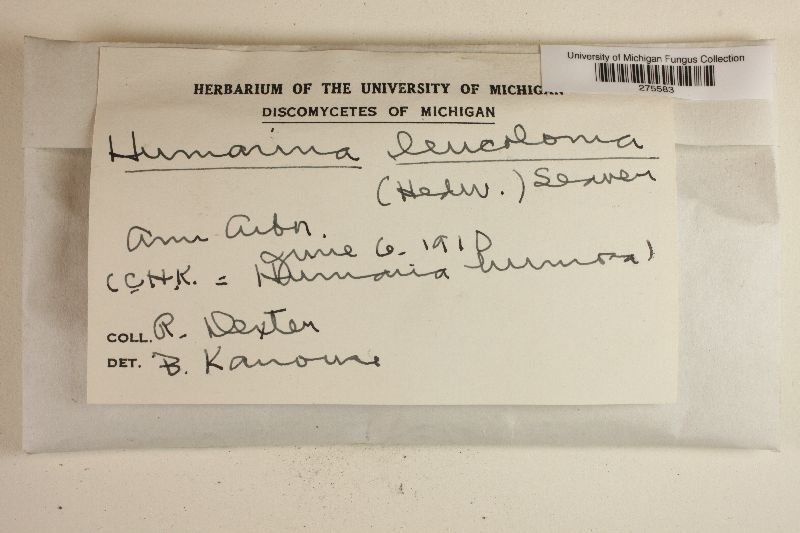 University of Michigan Fungus Collection
275583
HERBARIUM OF THE UNIVERSITY OF MICHIGAN
DISCOMYCETES OF MICHIGAN
Humarina leucoloma
(Hedw.) Seaver
Ann Arbor.
June 6. 1910
(C.H.K. = Humaria humosa)
COLL. R. Dexter
DET. B. Kanouse